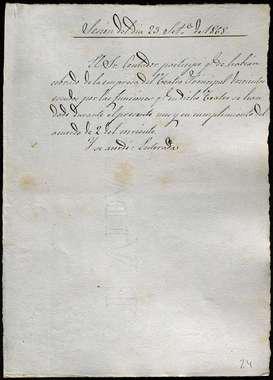 Sesion del dia 23 Setbre de 1868
El Sr. Contador participa qe. se habian
cobrado de la empresa del Teatro Principal
escudos por las funciones qe. en dicho Teatro se han
dado durante el presente mes y en cumplimiento del
acuerdo de 2 del corriente.
Y se acordó: Enterada.
24